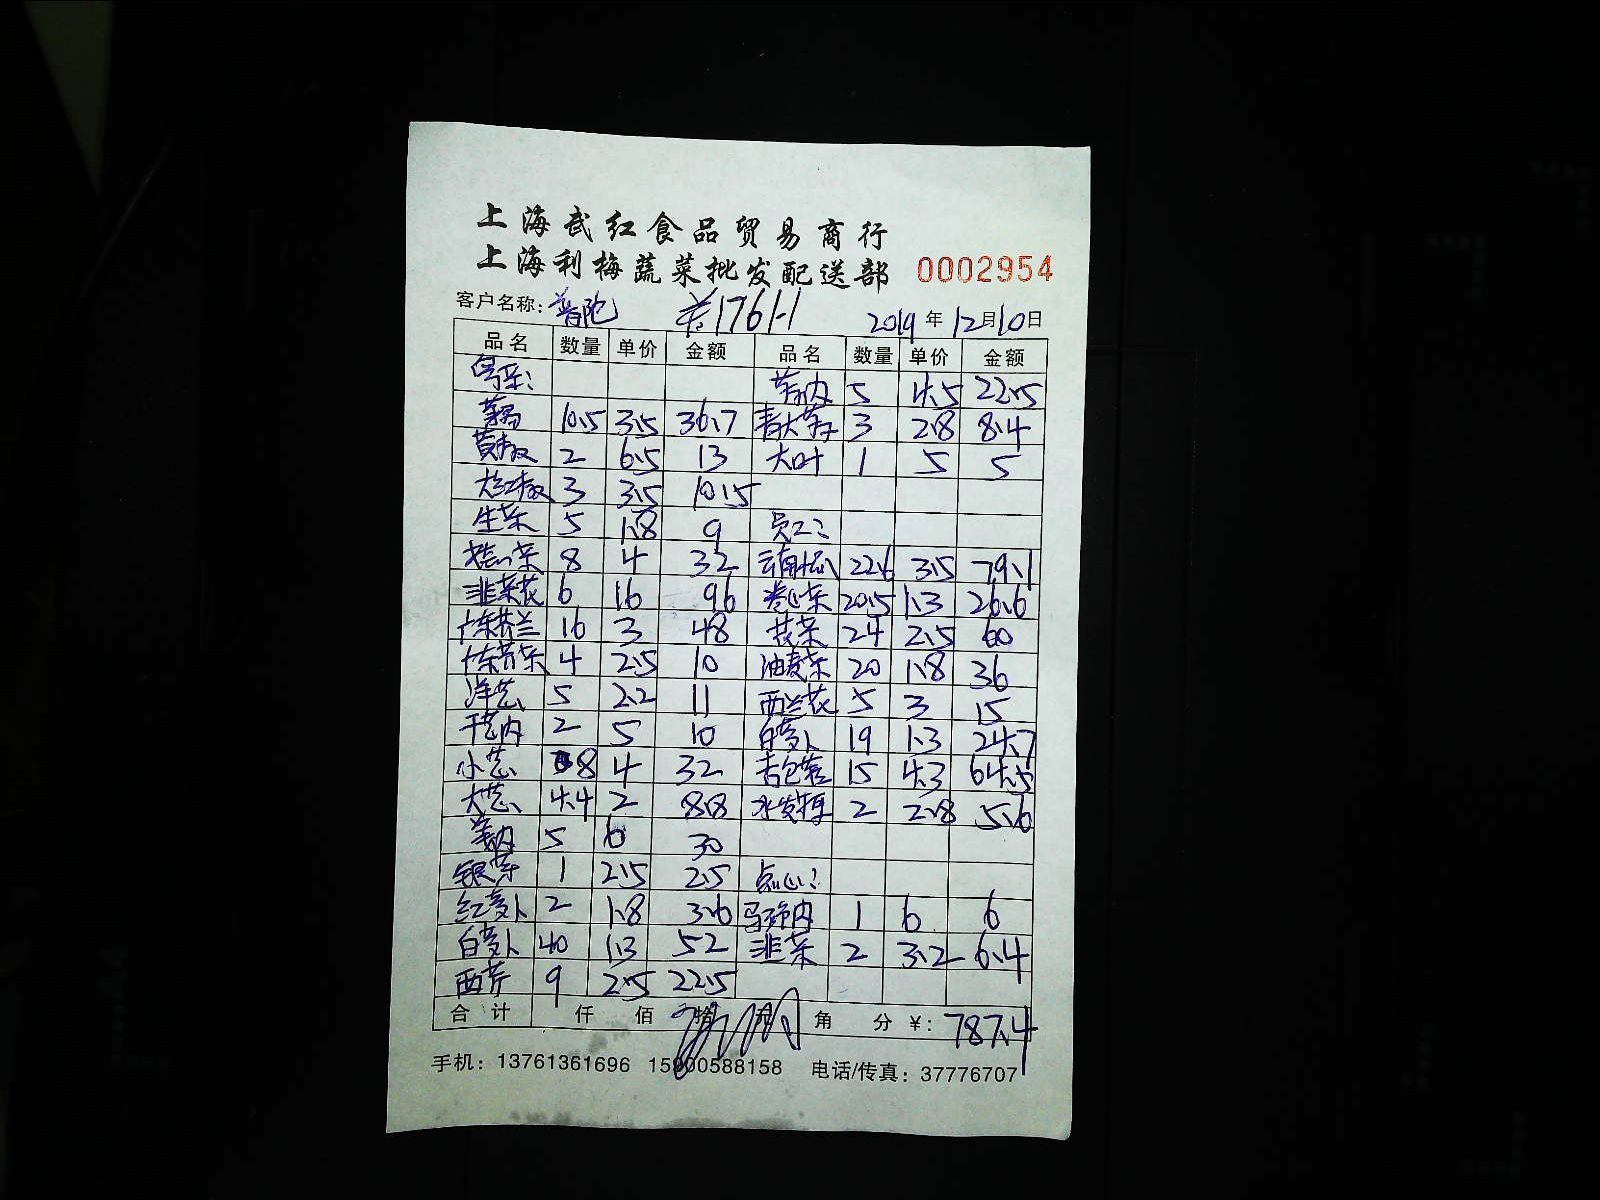 上海武红食品贸易商行
上海利梅蔬菜批发配送部 0002954
客户名称：普陀 1761-1 2019年12月10日
品名 数量 单价 金额 品名 数量 单价 金额
5 4.5 22.5
10.5 3.5 36.7 3 2.8 8.4
黄椒 2 6.5 13 大叶 1 5 5
大红椒 3 3.5 10.5
生菜 5 1.8 9 员工：
8 4 32 云南 22.6 3.5 79.1
韭菜花 6 16 96 卷心菜 20.5 1.3 26.6
广东芥兰 16 3 48 花菜 24 2.5 60
广东 菜 4 2.5 10 油麦菜 20 1.8 36
洋葱 5 2.2 11 西兰花 5 3 15
2 5 10 白萝卜 19 1.3 24.7
小葱 8 4 32 15 4.3 64.5
大葱 4.4 2 8.8 水发 2 2.8 5.6
5 6 30
银芽 1 2.5 2.5 点心：
红萝卜 2 1.8 3.6 1 6 6
白萝卜 40 1.3 52 韭菜 2 3.2 6.4
西芹 9 2.5 22.5
合计 仟 佰 拾 元 角 分 ¥：787.4
手机：13761361696 15900588158 电话/传真：37776707